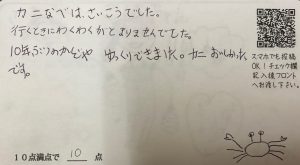 カニなべは、さいこうでした。
行くときにわくわくがとまりませんでした。
10年ぶりのかぞくや ゆっくりできました。カニ おいしかった
です。
スマホでも投稿
OK！チェック欄
記入後フロント
へお渡し下さい。
10点満点で 10 点